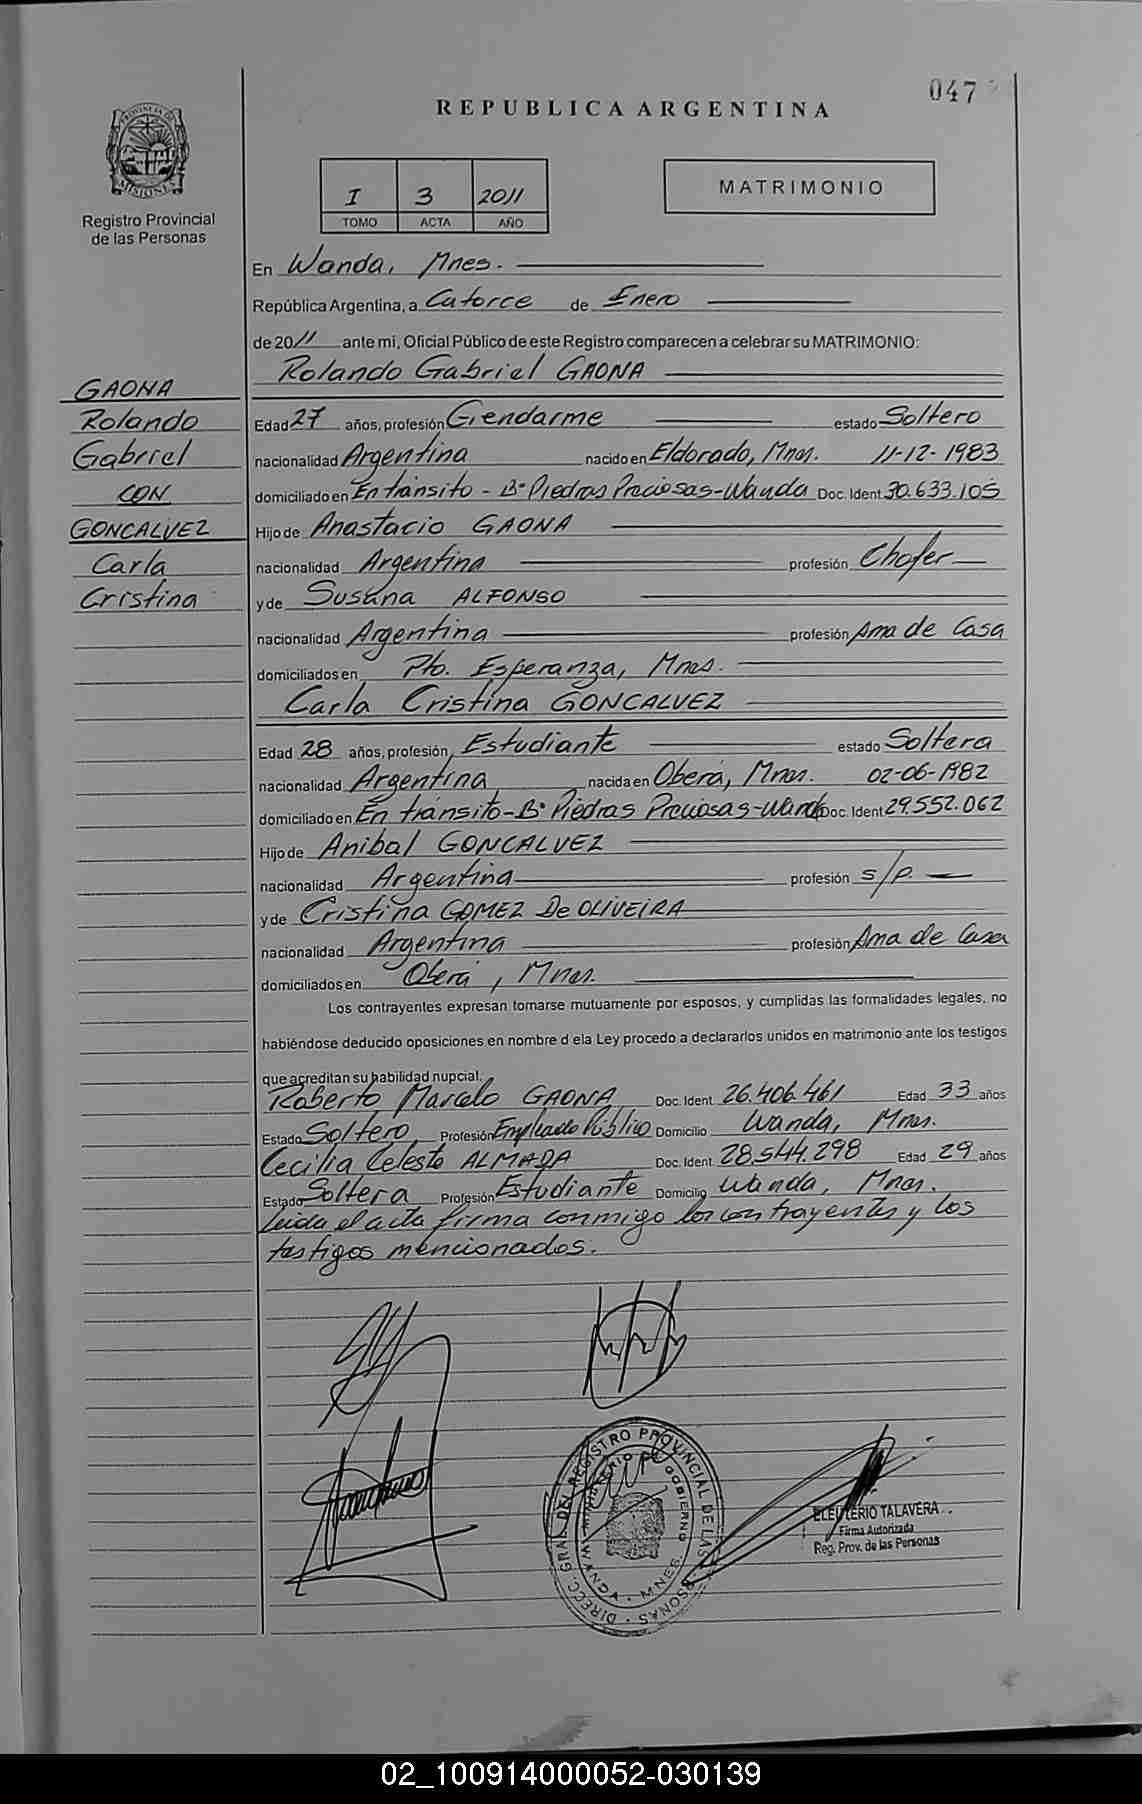 047
REPUBLICA ARGENTINA
PROVINCIA DE
MISIONES
Registro Provincial
de las Personas
I 3 2011
TOMO ACTA AÑO
MATRIMONIO
En Wanda, Mnes.
República Argentina, a Catorce de Enero
de 2011 ante mi, Oficial Público de este Registro comparecen a celebrar su MATRIMONIO:
Rolando Gabriel GAONA
GAONA
Rolando
Gabriel
CON
GONCALVEZ
Carla
Cristina
Edad 27 años, profesión Gendarme estado Soltero
nacionalidad Argentina nacido en Eldorado, Mnes. 11-12-1983
domiciliado en En tránsito - B° Piedras Preciosas-Wanda Doc. Ident 30.633.105
Hijo de Anastacio GAONA
nacionalidad Argentina profesión Chofer
y de Susana ALFONSO
nacionalidad Argentina profesión Ama de Casa
domiciliados en Pto. Esperanza, Mnes.
Carla Cristina GONCALVEZ
Edad 28 años, profesión Estudiante estado Soltera
nacionalidad Argentina nacida en Oberá, Mnes. 02-06-1982
domiciliado en En tránsito-B° Piedras Preciosas-Wanda Doc. Ident 29.552.062
Hijo de Anibal GONCALVEZ
nacionalidad Argentina profesión s/p.
y de Cristina GOMEZ De OLIVEIRA
nacionalidad Argentina profesión Ama de Casa
domiciliados en Oberá, Mnes.
Los contrayentes expresan tomarse mutuamente por esposos, y cumplidas las formalidades legales, no
habiéndose deducido oposiciones en nombre d ela Ley procedo a declararlos unidos en matrimonio ante los testigos
que acreditan su habilidad nupcial.
Roberto Marcelo GAONA Doc. Ident 26.406.461 Edad 33 años
Estado Soltero, Profesión Empleado Público Domicilio Wanda, Mnes.
Cecilia Celeste ALMADA Doc. Ident 28.544.298 Edad 29 años
Estado Soltera Profesión Estudiante Domicilio Wanda, Mnes.
Leida el acta firma conmigo los contrayentes y los
testigos mencionados.
DIRECC. GRAL. DEL REGISTRO PROVINCIAL DE LAS PERSONAS
MINISTERIO DE GOBIERNO
WANDA - MNES.
ELEUTERIO TALAVERA
Firma Autorizada
Reg. Prov. de las Personas
02_100914000052-030139